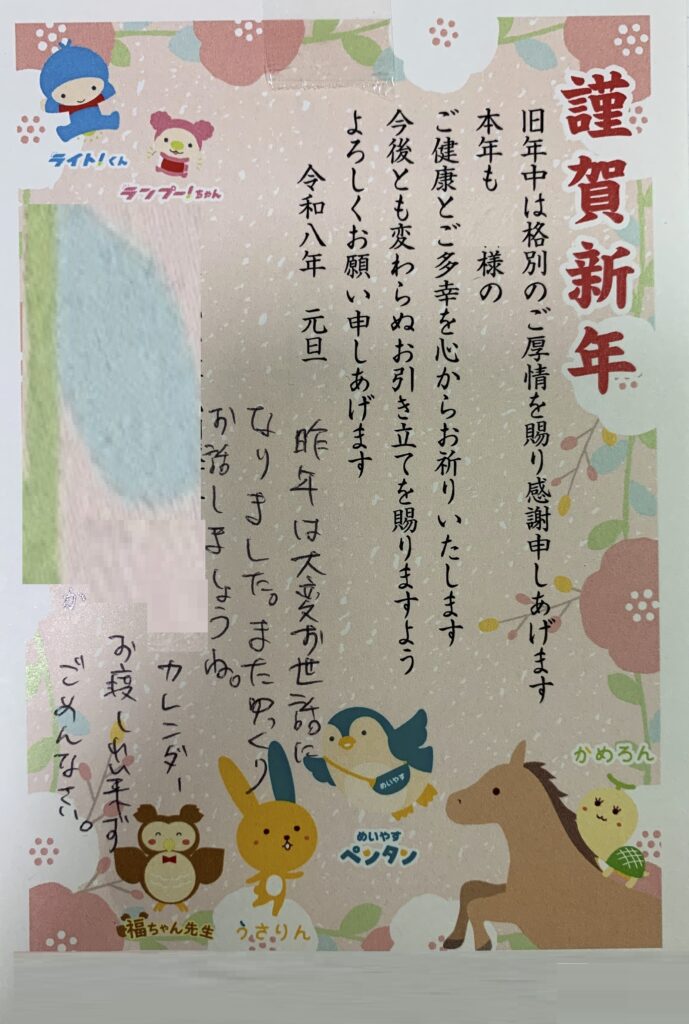 謹賀新年
旧年中は格別のご厚情を賜り感謝申しあげます
本年も　　様の
ご健康とご多幸を心からお祈りいたします
今後とも変わらぬお引き立てを賜りますよう
よろしくお願い申しあげます
令和八年　元旦
昨年は大変お世話に
なりました。またゆっくり
お話しましょうね。
カレンダー
お渡し出来ず
ごめんなさい。
が
ライト!くん
ランプー!ちゃん
かめろん
めいやす
めいやす
ペンタン
うさりん
福ちゃん先生